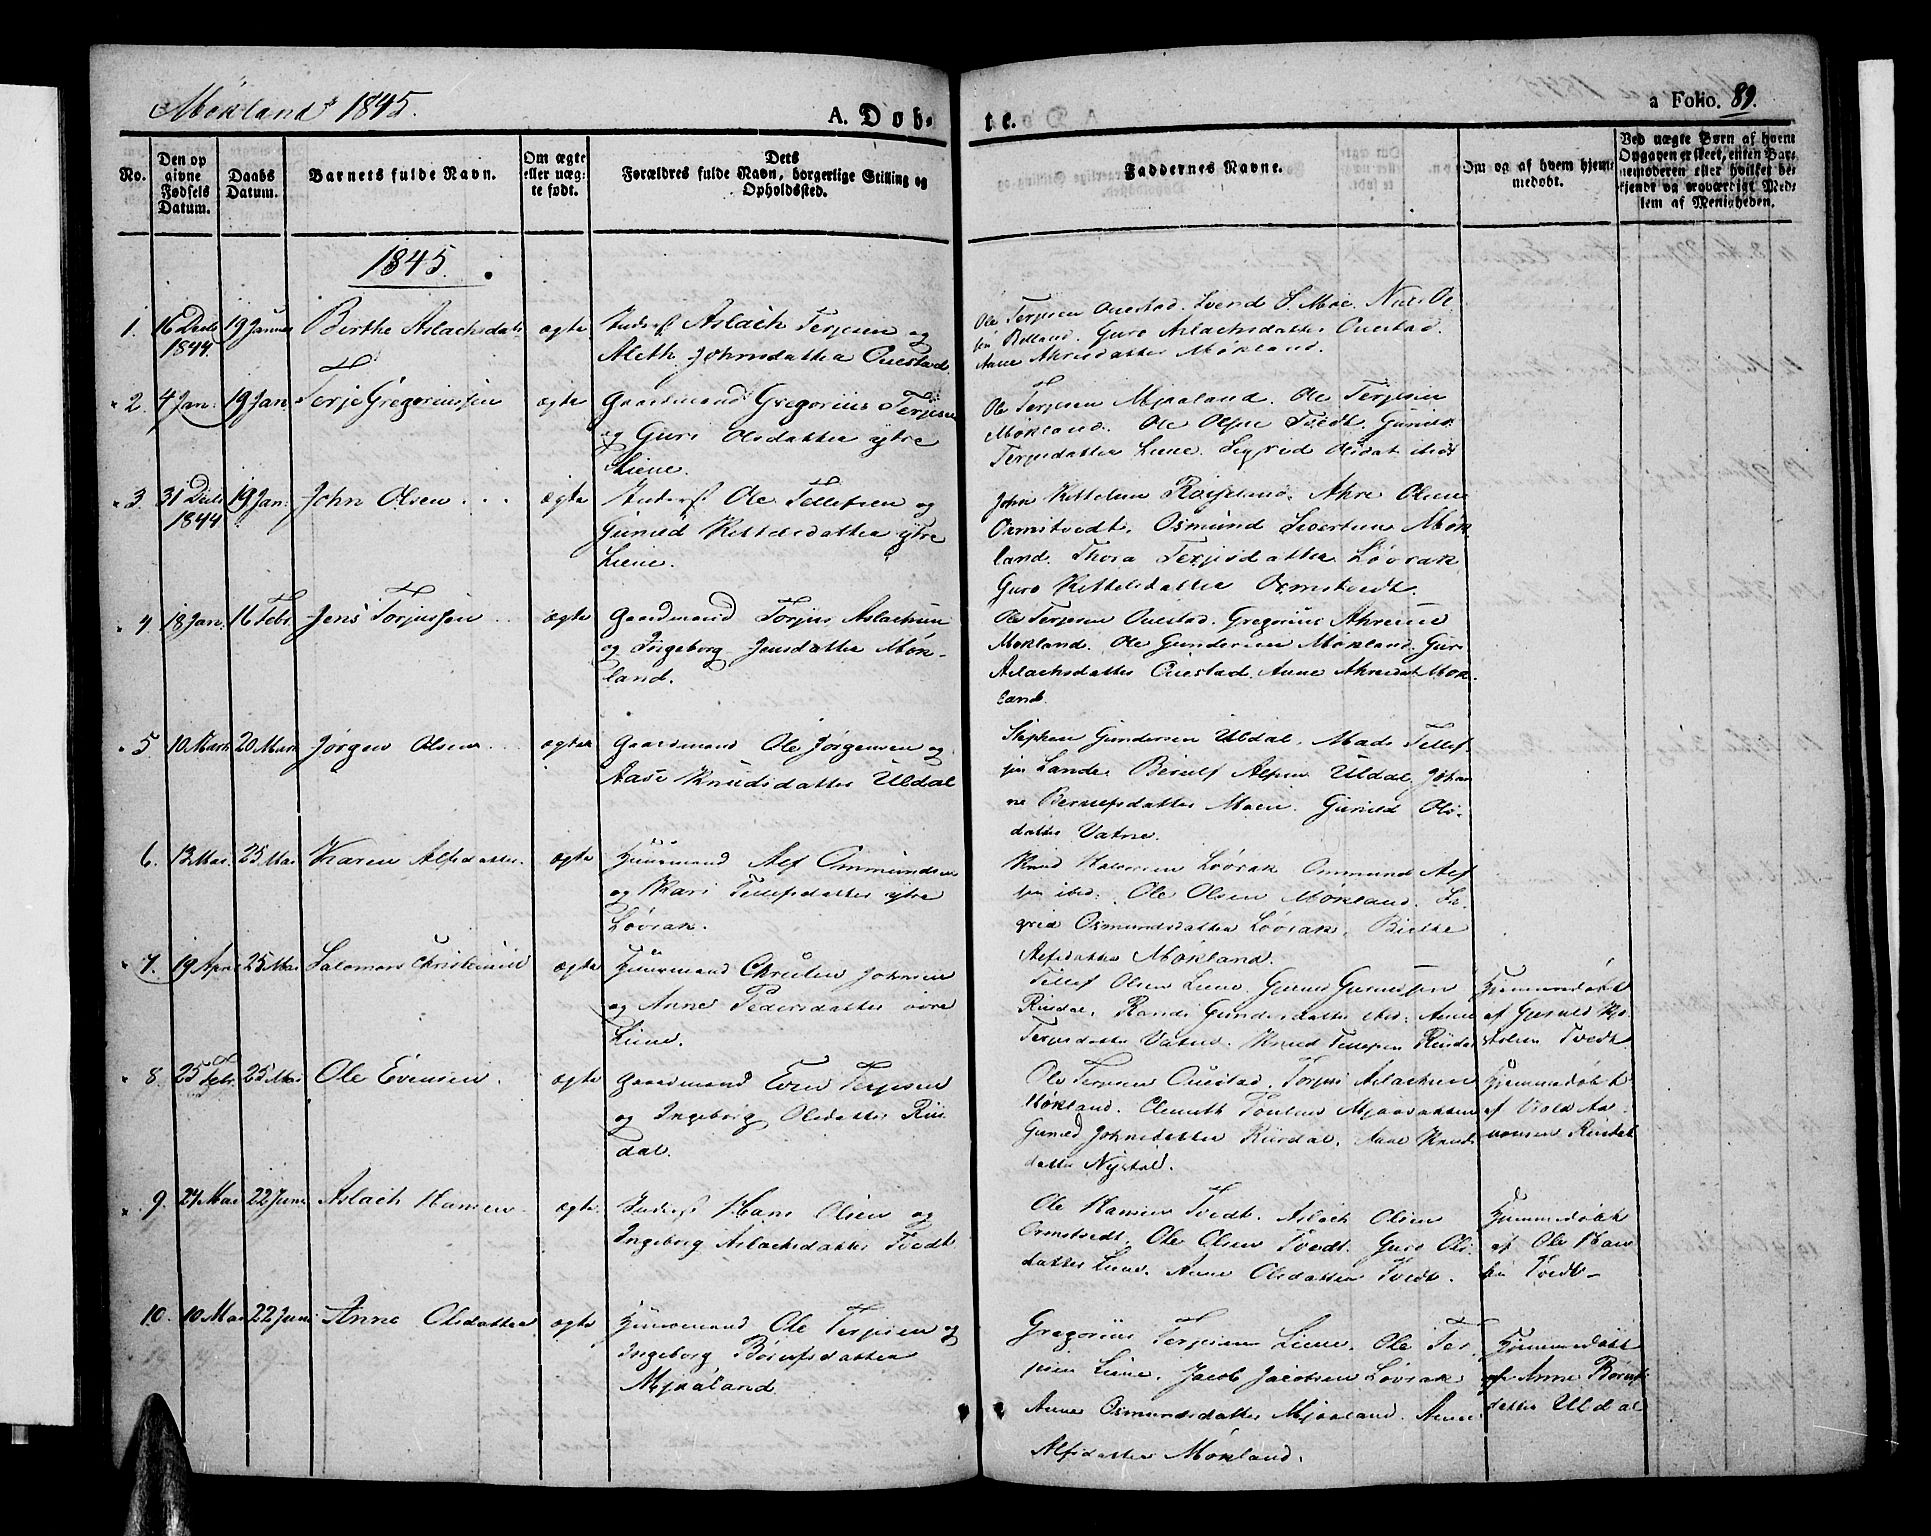 Møklands 1845.
A. Døb-
te.
a Folio. 89.
No.
Den op
givne
Fødsels
Datum.
Daabs
Datum.
Barnets fulde Navn.
Om ægte
eller uæg-
te født.
Dets
Forældres fulde Navn, borgerlige Stilling og
Opholdssted.
Faddernes Navne.
Om og af hvem hjem-
medøbt.
Ved uægte Børn af hvem
Opgaven er skeet, enten Bar-
nemoderen eller hvilket be-
kjendt og troværdigt Med-
lem af Menigheden.
1845.
1. 16 Decbr 1844. 19 Januar Birthe Aslachsdatt. ægte
Inderst Aslach Terjesen og
Aleth Johnsdatter Ouestad
Ole Terjesen Ouestad. Svend S. Moe. Niels Ol-
sen Birkeland. Guro Aslachsdatter Ouestad.
Anne Ahresdatter Møkland.
2. 4 Jan. 19 Jan. Terje Gregoriussen ægte
Gaardmand Gregorius Terjesen
og Guri Olsdatter ytre
Liene.
Ole Terjesen Mjaaland. Ole Terjesen
Møkland. Ole Olsen Tvedt. Gunild
Terjesdatter Liene. Sigrid Olsdat. ibid.
3. 31 Decbr 1844 19 Jan. John Olsen ægte
Inderst Ole Tellefsen og
Gunild Kittelsdatter ytre
Liene.
John Kittelsen Røiseland. Ahre Olsen
Ormstvedt. Osmund Sivertsen Møk-
land. Thora Terjesdatter Løvrak
Guro Kittelsdatter Ormstvedt.
4. 18 Jan. 16 Febr. Jens Torjussen ægte
Gaardmand Torjus Aslachsen
og Ingeborg Jensdatter Møk-
land.
Ole Terjesen Ouestad. Gregorius Ahresen
Møkland. Ole Gundersen Møkland. Guro
Aslachsdatter Ouestad. Anne Ahresdat. Møk-
land.
5. 10 Marts 20 Marts Jørgen Olsen ægte
Gaardmand Ole Jørgensen og
Aase Knudsdatter Uldal
Stephan Gundersen Uldal. Mads Tellef-
sen Lande. Beruld Alfsen Uldal. Johan-
ne Berulfsdatter Moen. Gunild Ols-
datter Vatne.
6. 13 Mar. 25 Mai Karen Alfsdatter ægte
Huusmand Alf Ommundsen
og Kari Tellefsdatter ytre
Løvrak.
Knud Halvorsen Løvrak Ommund Alf-
sen ibid: Ole Olsen Møkland. Si-
grid Osmundsdatter Løvrak. Birthe
Alfsdatter Møkland.
7. 19 April 25 Mai Salomon Christensen ægte
Huusmand Christen Johnsen
og Anne Pedersdatter øvre
Liene.
Tellef Olsen Liene. Gunuf Gunufsen
Riisdal. Randi Gundersdatter ibid: Anne
Terjesdatter Vatne. Knud Tellefsen Riisdal
Hjemmedøbt
af Gjeruld Kje-
tolsen Tvedt.
8. 25 Febr. 25 Mai Ole Evensen. ægte
Gaardmand Even Terjesen
og Ingeborg Olsdatter Riis-
dal.
Ole Terjesen Ouestad. Torjus Aslachsen
Møkland. Clemeth Mjaavatten
Gunild Johnsdatter Riisdal. Aase Knuds-
datter Nystøl.
Hjemmedøbt
af Rold Aa-
nonsen Riisdal
9. 27 Mai 22 Juni Aslach Hansen ægte.
Inderst Hans Olsen og
Ingeborg Aslachsdatter Tvedt
Ole Hansen Tvedt. Aslach Olsen
Ormstvedt. Ole Olsen Tvedt. Guro Ols-
datter Liene. Anne Olsdatter Tvedt.
Hjemmedøbt
af Ole Han-
sen Tvedt
10. 10 Mai 22 Juni Anne Olsdatter ægte
Huusmand Ole Terjesen og
Ingeborg Berufsdatter
Mjaaland.
Gregorius Terjesen Liene. Ole Ter-
jesen Liene. Jacob Jacobsen Løvrak
Anne Osmundsdatter Mjaaland. Anne
Alfsdatter Møkland.
Hjemmedøbt
af Anne Beruf-
datter Uldal